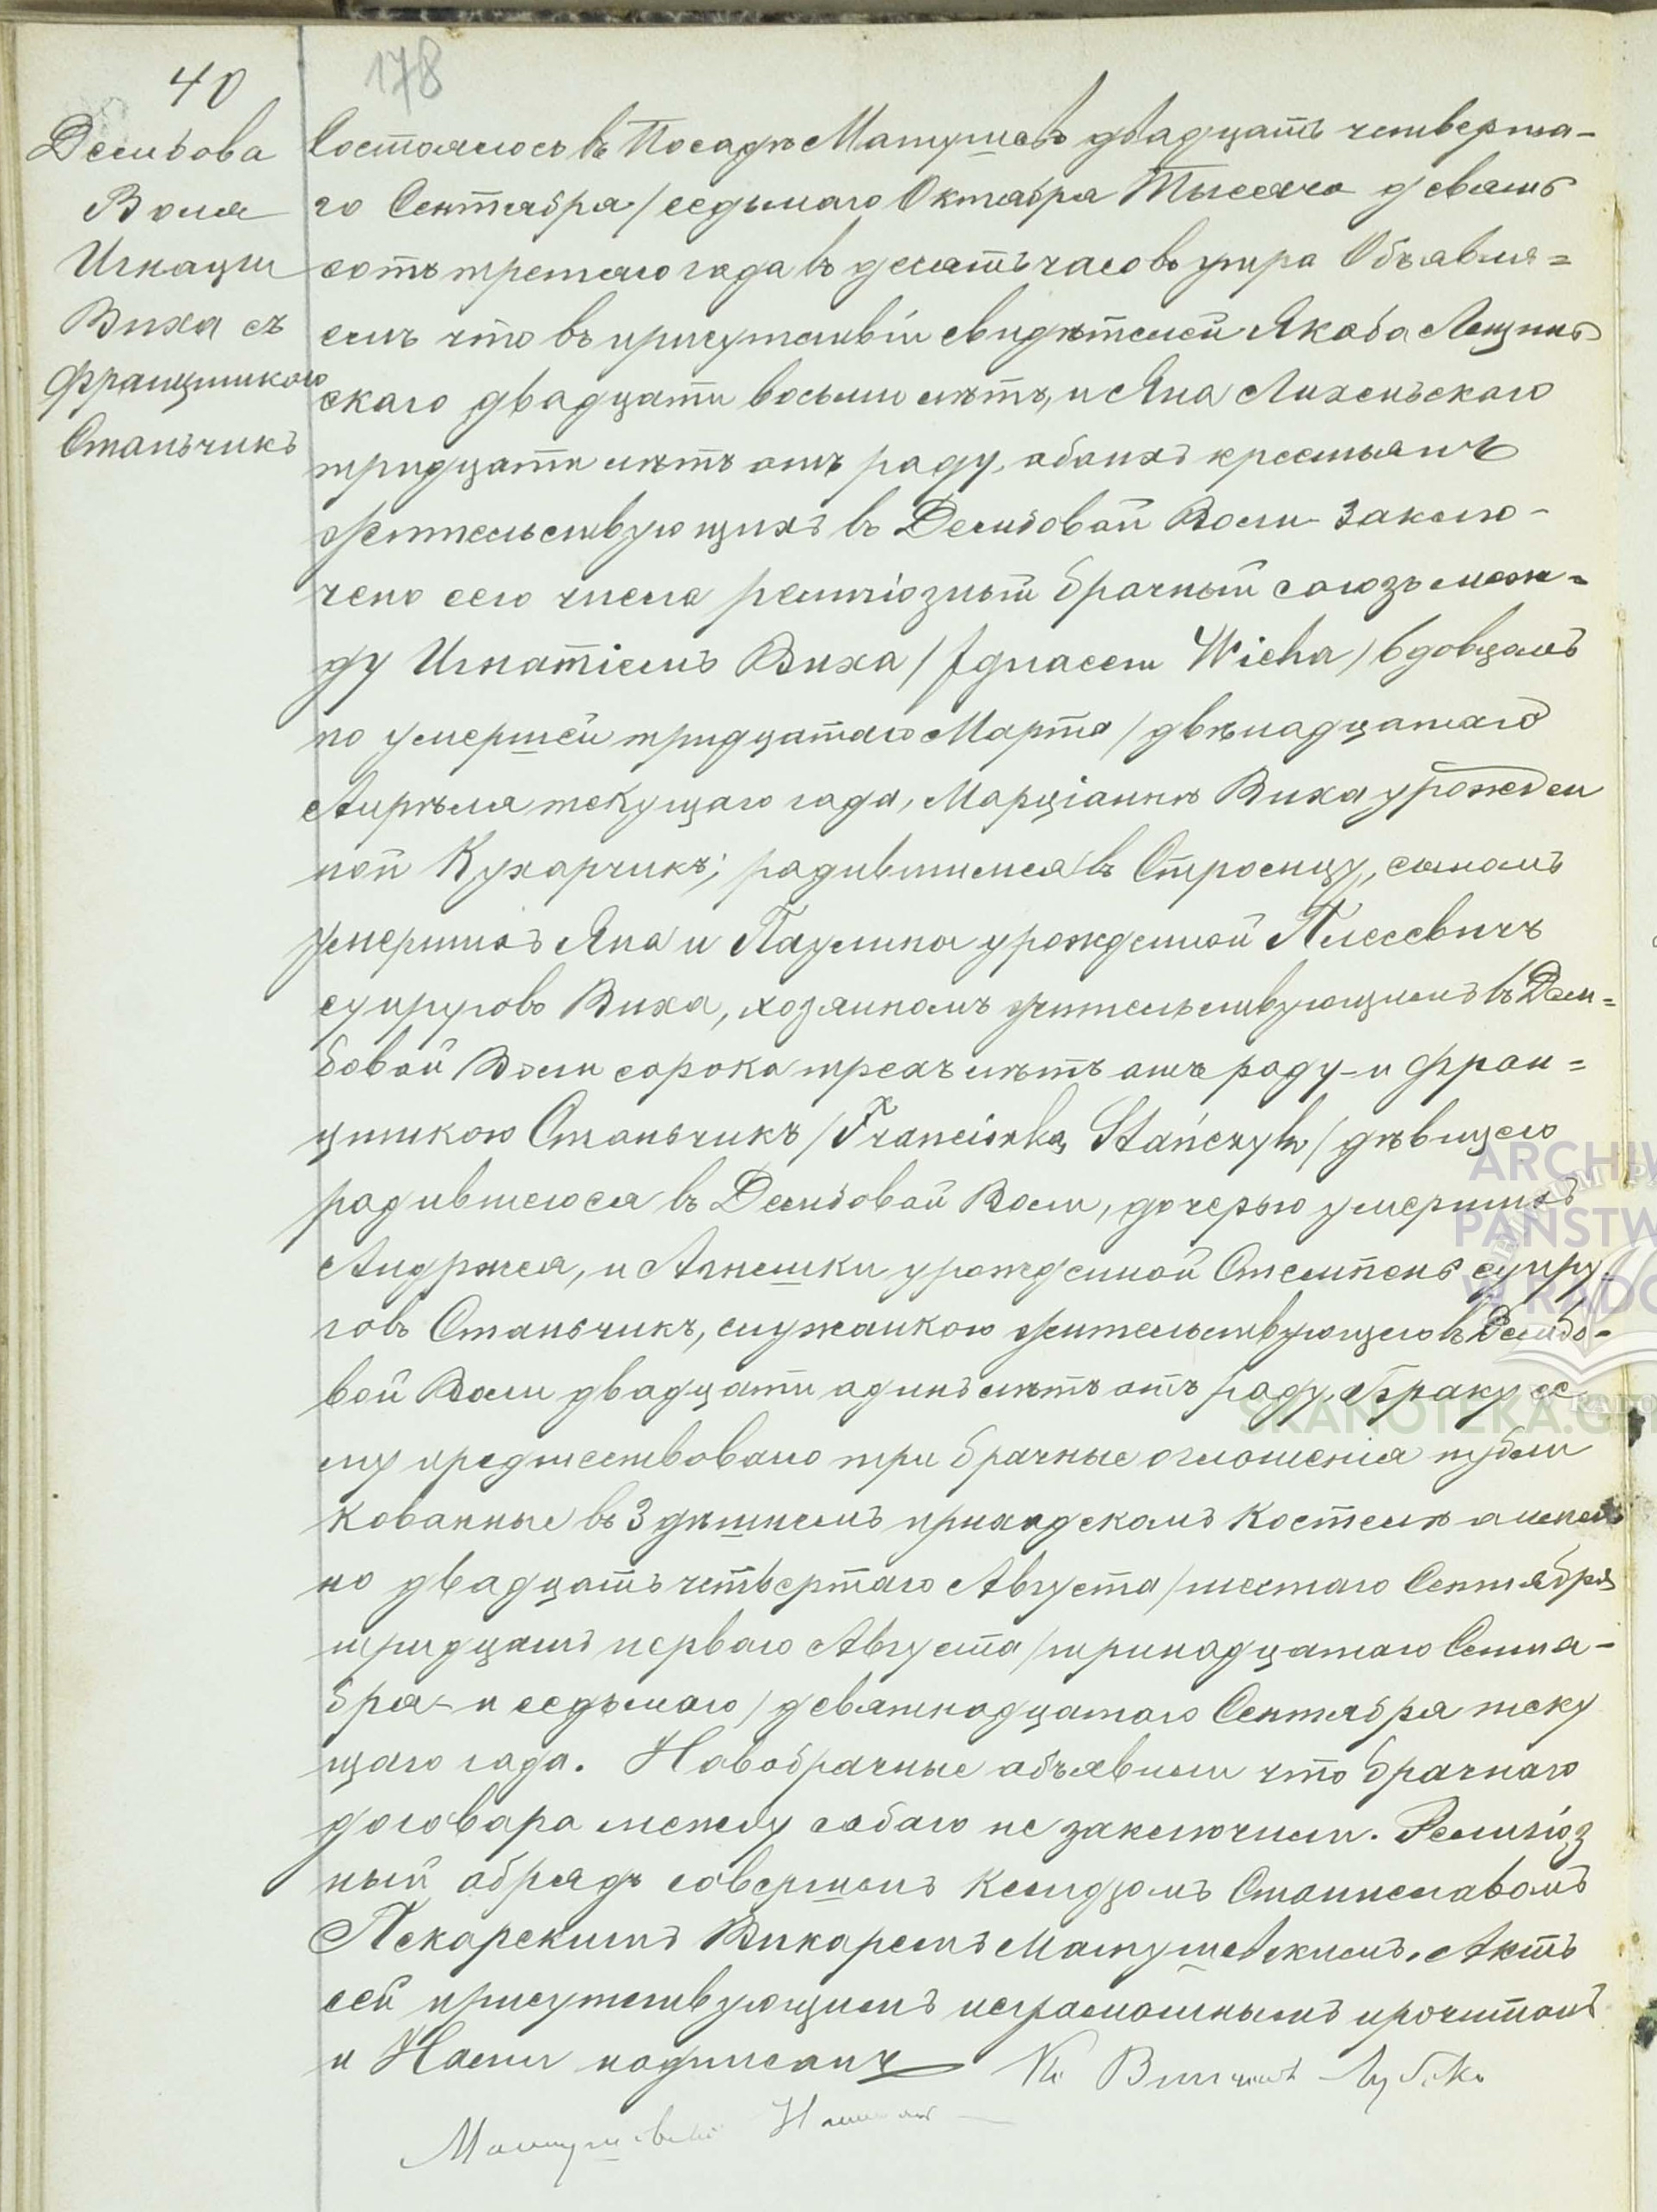 40
178
Дембова
Воля
Игнацы
Виха съ
Францишкою
Станьчикъ
Состоялось въ Посадѣ Матушевъ двадцать четверта-
го Сентября/седьмаго Октября Тысяча девять
сотъ третьяго года въ десять часовъ утра Объявля=
емъ что въ присутствіи свидѣтелей Якоба Лещин
скаго двадцати восьми лѣтъ, и Яна Лихеньскаго
тридцати лѣтъ отъ роду, обоихъ крестьянъ
жительствующихъ въ Дембовой Воли заклю-
чено сего числа религіозный брачный союзъ меж=
ду Игнатіемъ Виха /Ignacem Wicha/ вдовцомъ
по умершей тридцатаго Марта /двѣнадцатаго
Апрѣля текущаго года, Марціаннѣ Виха урожден
ной Кухарчикъ; родившимся въ Строецу, сыномъ
умершихъ Яна и Паулины урожденной Плесевичъ
супруговъ Виха, хозяиномъ жительствующимъ въ Дем=
бовой Воли сорока трехъ лѣтъ отъ роду и Фран=
цишкою Станьчикъ /Franciszką Stańczyk/ дѣвицею
родившеюся въ Дембовой Воли, дочерью умершихъ
Андржея, и Агнешки урожденной Стемпень супру-
говъ Станьчикъ, служанкою жительствующею въ Дембо-
вой Воли двадцати одинъ лѣтъ отъ роду. Браку се
му предшествовало три брачные оглошенія публи
кованные въ Здѣшнемъ приходскомъ Костелѣ а имен
но двадцать четвертаго Августа/шестаго Сентября
тридцать перваго Августа/тринадцатаго Сентя-
бря и седьмаго/девятнадцатаго Сентября теку
щаго года. Новобрачные объявили что брачнаго
договора между собою не заключили. Религіоз
ный обрядъ совершенъ Ксендзомъ Станиславомъ
Пекарскимъ Викаремъ Матушевскимъ. Актъ
сей присутствующимъ неграмотнымъ прочитанъ
и Нами подписанъ Кс